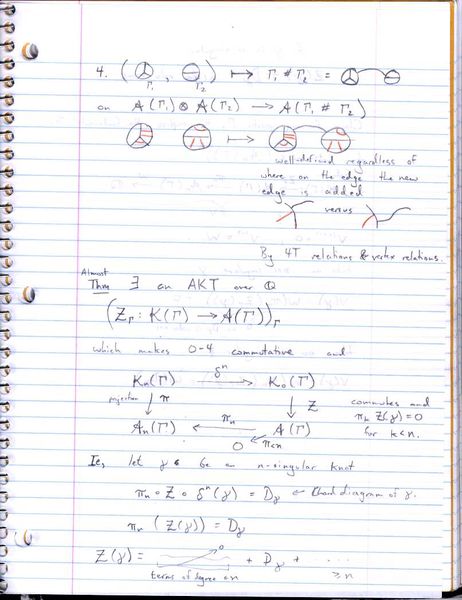 4. ( , ) ↦ Γ₁ # Γ₂ =
Γ₁ Γ₂
on A(Γ₁) ⊗ A(Γ₂) → A(Γ₁ # Γ₂)
↦
well-defined regardless of
where on the edge the new
edge is added
versus
By 4T relations & vertex relations.
Almost
Thm ∃ an AKT over Q
(Z_Γ : K(Γ) → A(Γ))_Γ
which makes 0-4 commutative and
Kₙ(Γ) δⁿ → K₀(Γ)
projection ↓ π ↓ Z commutes and
Aₙ(Γ) ← πₙ A(Γ) π_k Z(γ) = 0
0 ← π_{k<n} for k<n.
Ie, let γ be an n-singular knot
πₙ ∘ Z ∘ δⁿ(γ) = D_γ ← Chord diagram of γ.
πₙ (Z(γ)) = D_γ
Z(γ) = 0 + D_γ + ....
terms of degree <n ≥n